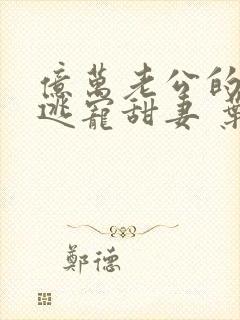 億萬老公的
逃寵甜妻 葉
鄭德